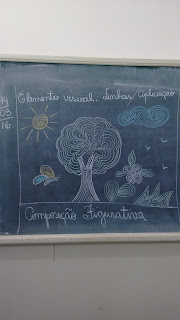 Elemento visual: Linhas/aplicação
03
16.
Composição Figurativa